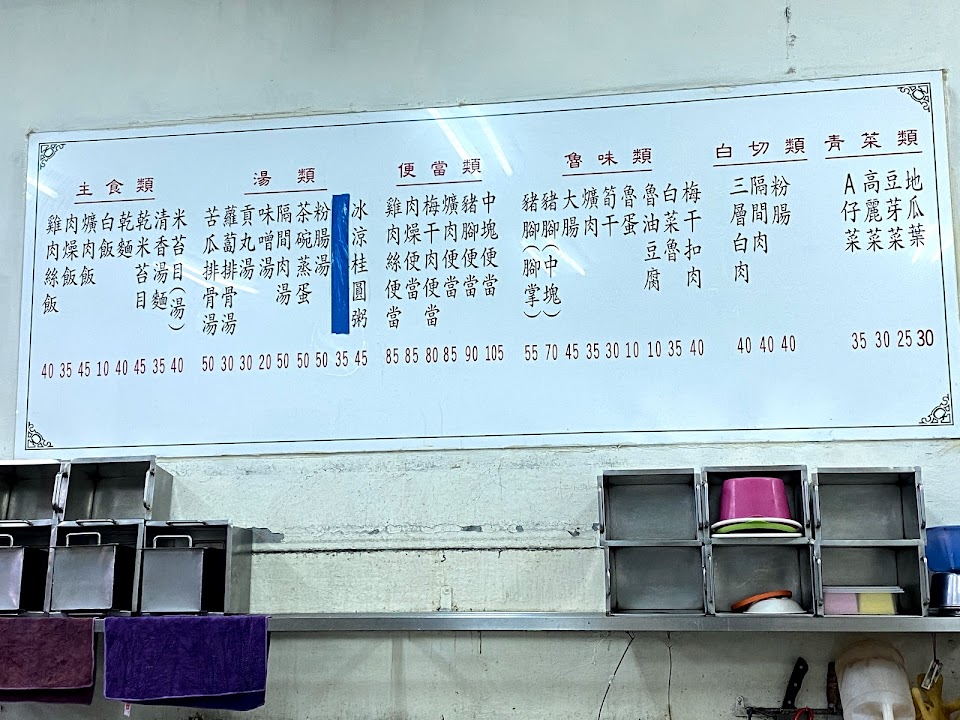 主食類
雞肉絲飯
肉燥飯
爌肉飯
白飯
乾麵
乾米苔目
清香湯麵
米苔目(湯)
40 35 45 10 40 45 35 40
湯類
苦瓜排骨湯
蘿蔔排骨湯
貢丸湯
味噌湯
隔間肉湯
茶碗蒸蛋
粉腸湯
冰涼桂圓粥
50 30 30 20 50 50 50 35 45
便當類
雞肉絲便當
肉燥便當
梅干肉便當
爌肉便當
豬腳便當
中塊便當
85 85 80 85 90 105
魯味類
豬腳(腳掌)
豬腳(中塊)
大腸
爌肉
筍干
魯蛋
魯油豆腐
白菜魯
梅干扣肉
55 70 45 35 30 10 10 35 40
白切類
三層白肉
隔間肉
粉腸
40 40 40
青菜類
A仔菜
高麗菜
豆芽菜
地瓜葉
35 30 25 30